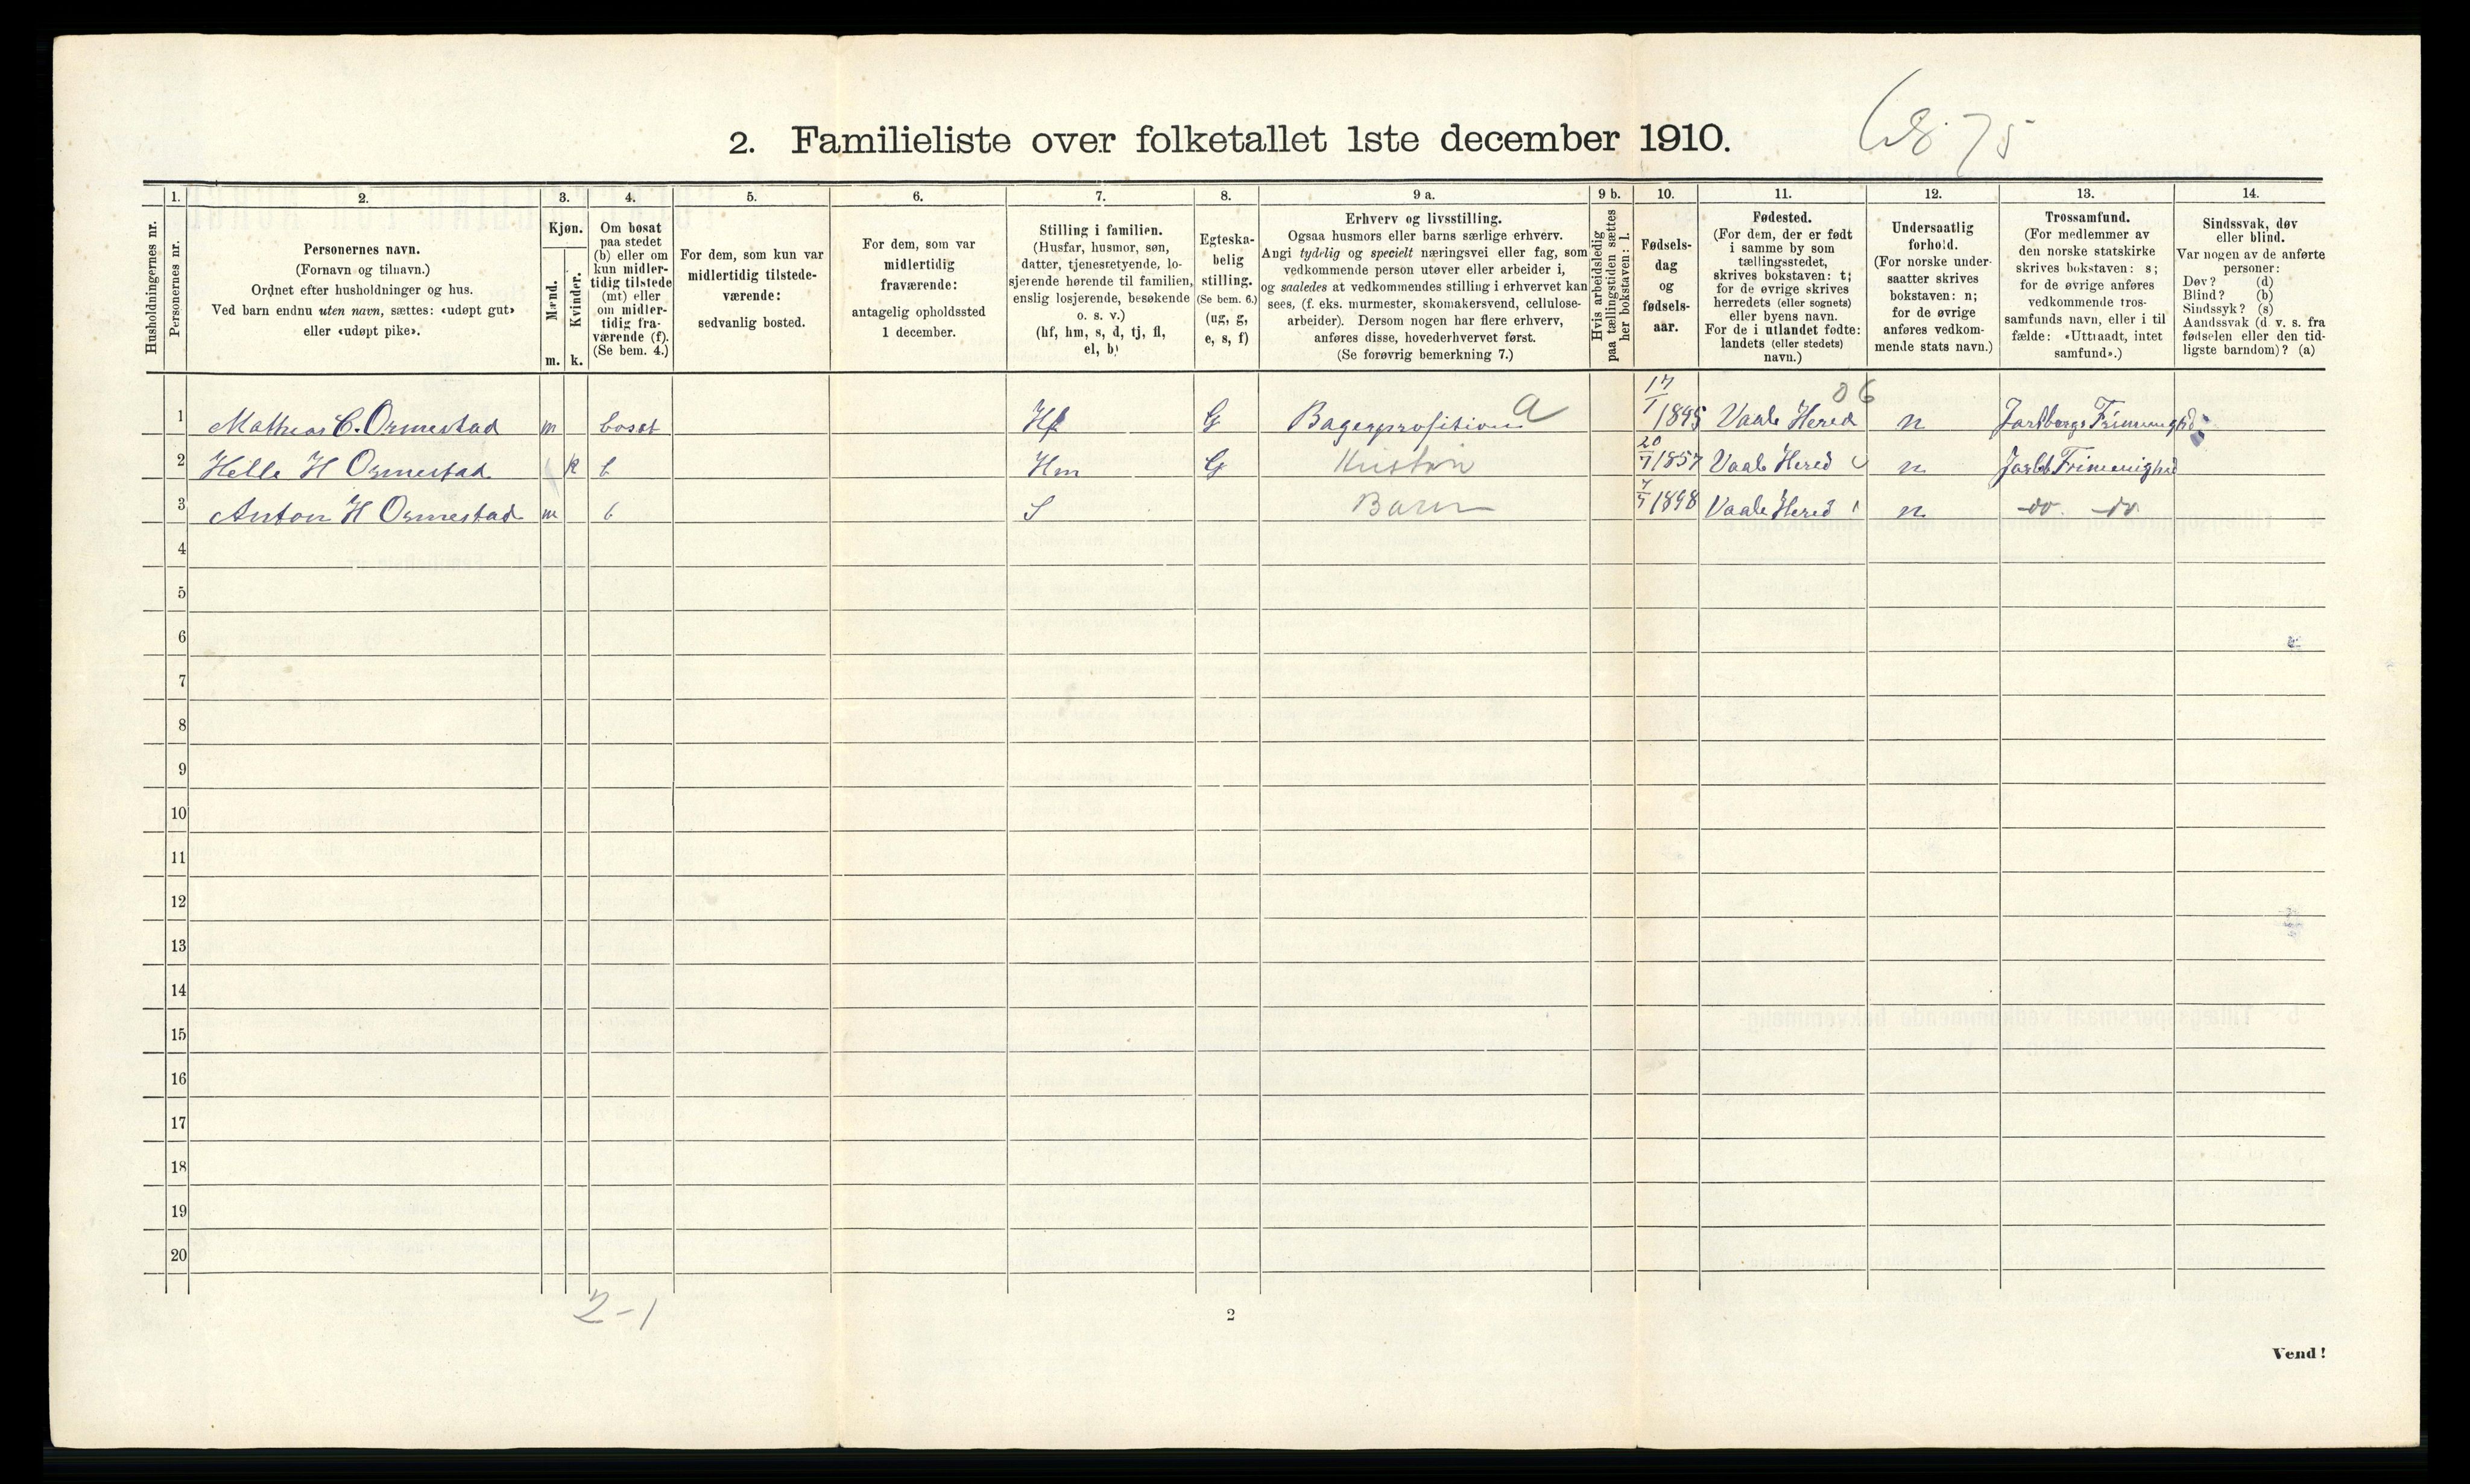 2. Familieliste over folketallet 1ste december 1910.
Husholdningernes nr.
1.
Personernes nr.
2.
Personernes navn.
(Fornavn og tilnavn.)
Ordnet efter husholdninger og hus.
Ved barn endnu uten navn, sættes: «udøpt gut»
eller «udøpt pike».
3.
Kjøn.
Mænd.
m.
Kvinder.
k.
4.
Om bosat
paa stedet
(b) eller om
kun midler-
tidig tilstede
(mt) eller
om midler-
tidig fra-
værende (f).
(Se bem. 4.)
5.
For dem, som kun var
midlertidig tilstede-
værende:
sedvanlig bosted.
6.
For dem, som var
midlertidig
fraværende:
antagelig opholdssted
1 december.
7.
Stilling i familien.
(Husfar, husmor, søn,
datter, tjenestetyende, lo-
sjerende hørende til familien,
enslig losjerende, besøkende
o. s. v.)
(hf, hm, s, d, tj, fl,
el, b)
8.
Egteska-
belig
stilling.
(Se bem. 6.)
(ug, g,
e, s, f)
9 a.
Erhverv og livsstilling.
Ogsaa husmors eller barns særlige erhverv.
Angi tydelig og specielt næringsvei eller fag, som
vedkommende person utøver eller arbeider i,
og saaledes at vedkommendes stilling i erhvervet kan
sees, (f. eks. murmester, skomakersvend, cellulose-
arbeider). Dersom nogen har flere erhverv,
anføres disse, hovederhvervet først.
(Se forøvrig bemerkning 7.)
9 b.
Hvis arbeidsledig
paa tællingstiden sættes
her bokstaven: l.
10.
Fødsels-
dag
og
fødsels-
aar.
11.
Fødested.
(For dem, der er født
i samme by som
tællingsstedet,
skrives bokstaven: t;
for de øvrige skrives
herredets (eller sognets)
eller byens navn.
For de i utlandet fødte:
landets (eller stedets)
navn.)
12.
Undersaatlig
forhold.
(For norske under-
saatter skrives
bokstaven: n;
for de øvrige
anføres vedkom-
mende stats navn.)
13.
Trossamfund.
(For medlemmer av
den norske statskirke
skrives bokstaven: s;
for de øvrige anføres
vedkommende tros-
samfunds navn, eller i til
fælde: «Uttraadt, intet
samfund».)
14.
Sindssvak, døv
eller blind.
Var nogen av de anførte
personer:
Døv? (d)
Blind? (b)
Sindssyk? (s)
Aandssvak (d. v. s. fra
fødselen eller den tid-
ligste barndom)? (a)
06
1 Mathias C. Ormestad m bosat Hf G a 17/1 Vaale Hered n
2 Helle H Ormestad k b Hm G 20/7 1857 Vaale Hered n
3 Anton H Ormestad m b S Barn 1898 Vaale Hered n do do
4
5
6
7
8
9
10
11
12
13
14
15
16
17
18
19
20
2-1
2
Vend!